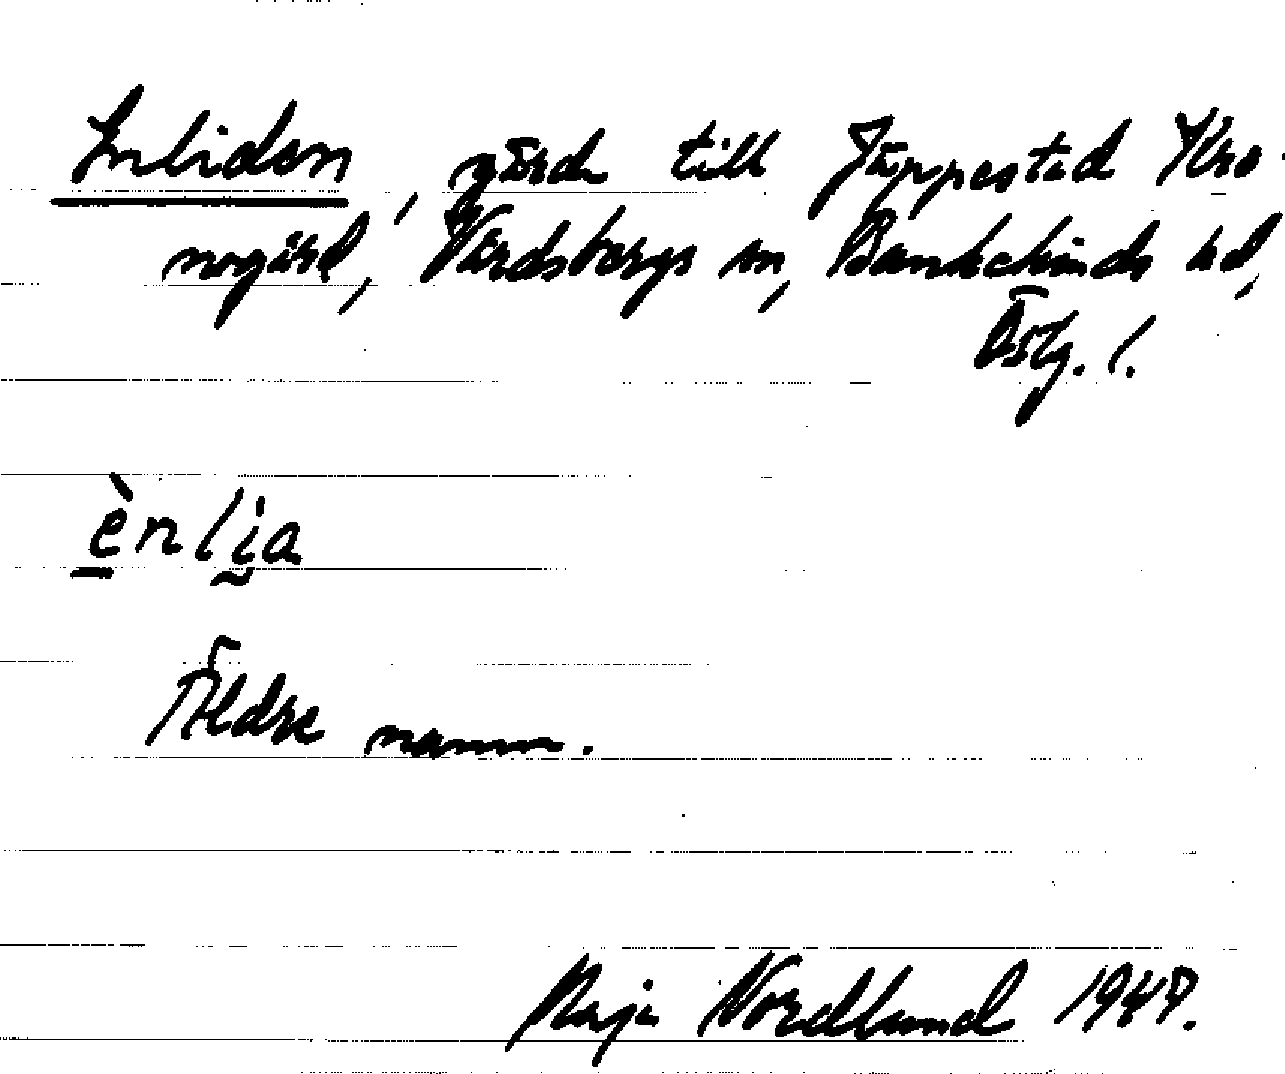 Enliden, gärde till Jäppestad Kro-
nogård, Vårdsbergs sn, Bankekinds hd,
Östg. l.
ènlia
Äldre namn.
Maja Nordlund